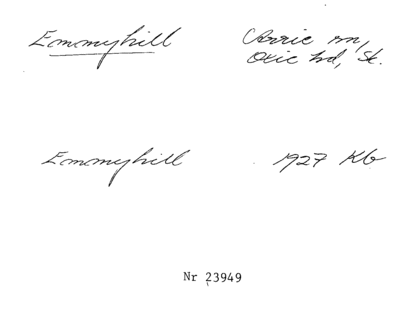 Emmyhill
Orrie sn,
Oxie hd, Sk.
Emmyhill
1927 Kb
Nr 23949